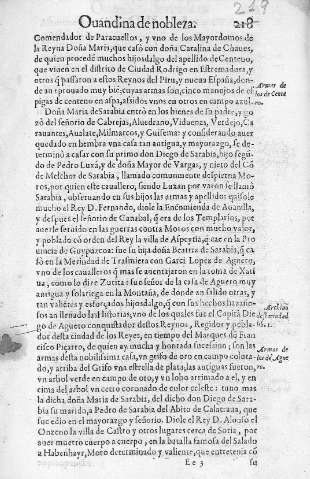 Ouandina de nobleza. 218
249
Comendador de Paracuellos, y vno de los Mayordomos de
la Reyna Doña Maria, que casò con doña Catalina de Chaues,
de quien procedē muchos hijosdalgo del apellido de Centeno,
que viuen en el distrito de Ciudad Rodrigo en Estremadura, y
otros q̃ passaron a estos Reynos del Piru, y nueua España, don-
de an aprouado muy biē, cuyas armas son, cinco manojos de es-
pigas de centeno en aspa, asidos vnos en otros en campo azul.
Armas de
los de Cente
no.
Doña Maria de Sarabia entrò en los bienes de su padre, y go
zò del señorio de Cabrejas, Aluedrazo, Vidueuza, Verdejo, Ca
rauantes, Aualate, Milmarcos, y Guisema: y considerando auer
quedado en hembra vna casa tan antigua, y mayorazgo, se de-
terminò a casar con su primo don Diego de Sarabia, hijo segũ-
do de Pedro Luxā, y de doña Mayor de Vargas, y nieto del Cõ
de Melchor de Sarabia, llamado comunmente despierta Mo-
ros, por quien este cauallero, siendo Luxan por varon se llamò
Sarabia, obseruando en sus hijos las armas y apellidos que solo
mucho el Rey D. Fernando, diole la Encomienda de Auanilla,
y despues el señorio de Canabal, q̃ era de los Templarios, por
auerle seruido en las guerras contra Moros con mucho valor,
y poblado cõ orden del Rey la villa de Aspeytia, q̃ cae en la Pro
uincia de Guypuzcoa: fue su hija doña Beatriz de Sarabia, q̃ ca-
sò en la Merindad de Trasmiera con Garci Lopez de Aguero,
vno de los caualleros q̃ mas se auentajaron en la toma de Xati
ua, como lo dize Zurita: fue señor de la casa de Aguero muy
antigua y solariega en la Montaña, de donde an salido otros, y
tan valiētes y esforçados hijosdalgo, q̃ con sus hechos hazañ-
sos an llenado las historias, vno de los quales fue el Capitā Die
go de Aguero conquistador destos Reynos, Regidor y pobla-
dor desta ciudad de los Reyes, en tiempo del Marques dō Fran
cisco Piçarro, de quien ay mucha y honrada sucession, son las
armas desta nobilissima casa, vn grifo de oro en campo colora-
do, y arriba del Grifo vna estrella de plata, las antiguas fueron,
vn arbol verde en campo de oro, y vn lobo arrimado a el, y en
cima del arbol vn cetro coronado de color celeste: tuuo mas
la dicha doña Maria de Sarabia, del dicho don Diego de Sara-
bia su marido, a Pedro de Sarabia del Abito de Calatraua, que
sucedio en el mayorazgo y señorio. Diole el Rey D. Alonso el
Onzeno la villa de Castro y otros lugares cerca de Soria, por
auer muerto cuerpo a cuerpo, en la batalla famosa del Salado
a Habenhayr, Moro determinado y valiente, que entretenia cõ
Armas de
los de Ague
ro.
Ee 3 su